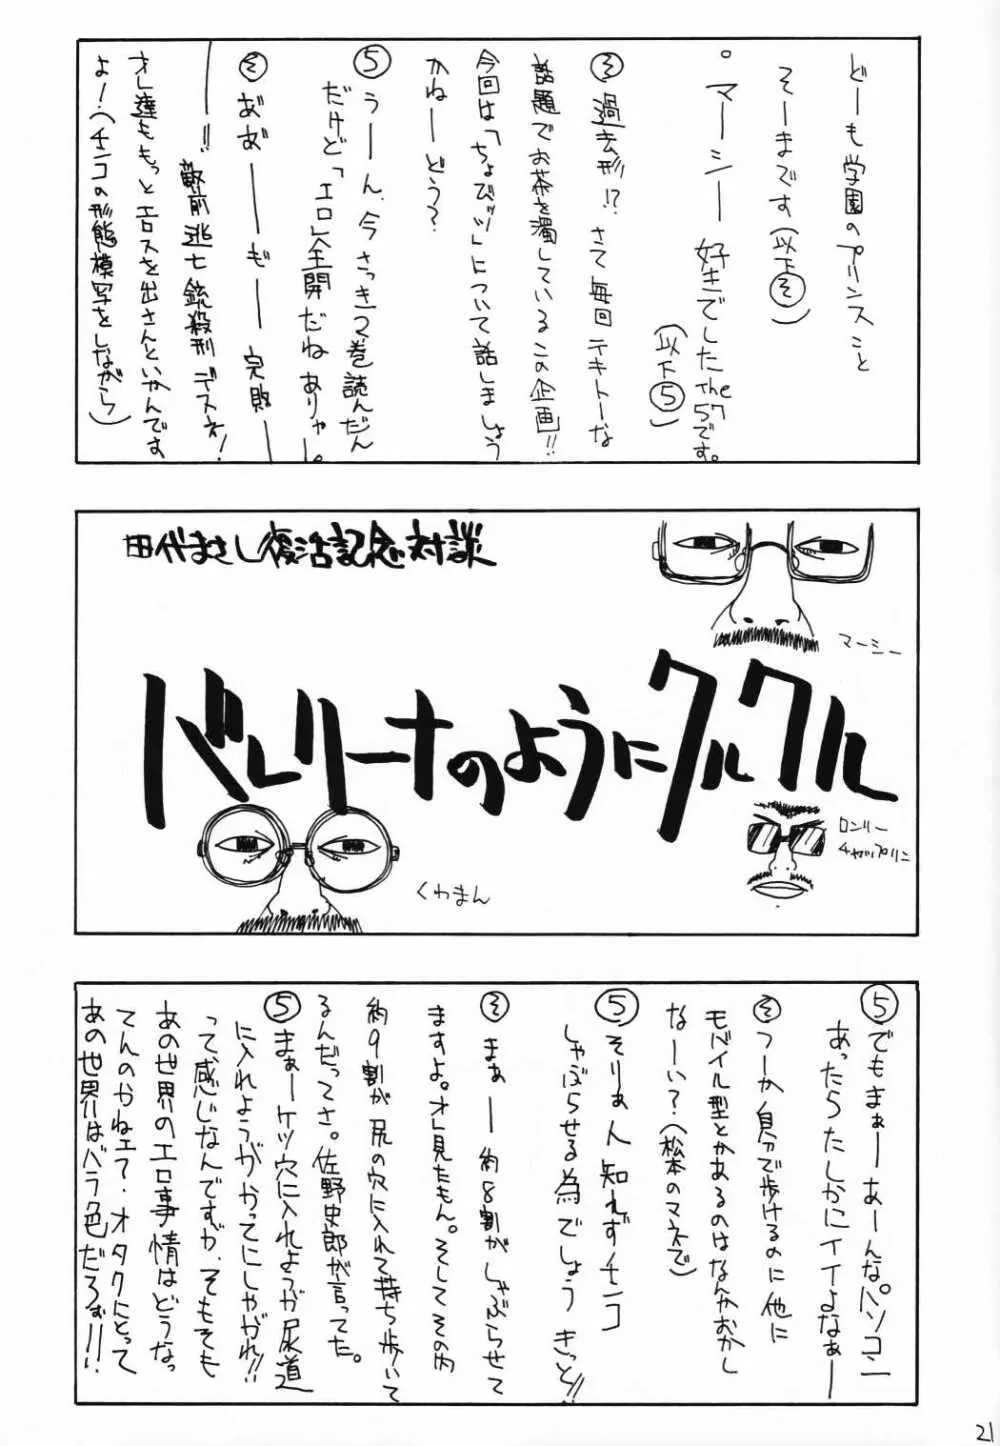 どーも学園のプリンスこと
そーまです(以下そ)
・マーシー好きでしたthe57です。
(以下5)
そ 過去形!? さて毎回テキトーな
話題でお茶を濁しているこの企画!!
今回は「ちょびッツ」について話しましょう
かねーどう?
5 うーん、今さっき1、2巻読んだん
だけど「エロ」全開だねありゃー。
そ あ゛あ゛ーーもーー完敗ー
ー!!敵前逃亡銃殺刑デスネ!
オレ達ももっとエロスを出さんといかんです
よ!(チンコの形態模写をしながら)
田代まさし復活記念対談
マーシー
バレリーナのようにクルクル
ロンリー
チャップリン
くわまん
5 でもまぁーあーんなパソコン
あったらたしかにイイよなぁー
そ つーか自分で歩けるのに他に
モバイル型とかあるのはなんかおかし
なーい?(松本のマネで)
5 そりぁ人知れずチンコ
しゃぶらせる為でしょうきっと!!
そ まぁー約8割がしゃぶらせて
ますよ。オレ見たもん。そしてその内
約9割が尻の穴に入れて持ち歩いて
るんだってさ。佐野史郎が言ってた。
5 まぁーケツ穴に入れようが尿道
に入れようがかってにしやがれ!!
って、感じなんですが、そもそも
あの世界のエロ事情はどうなっ
てんのかねェ?・オタクにとって
あの世界はバラ色だろぉー!!
21